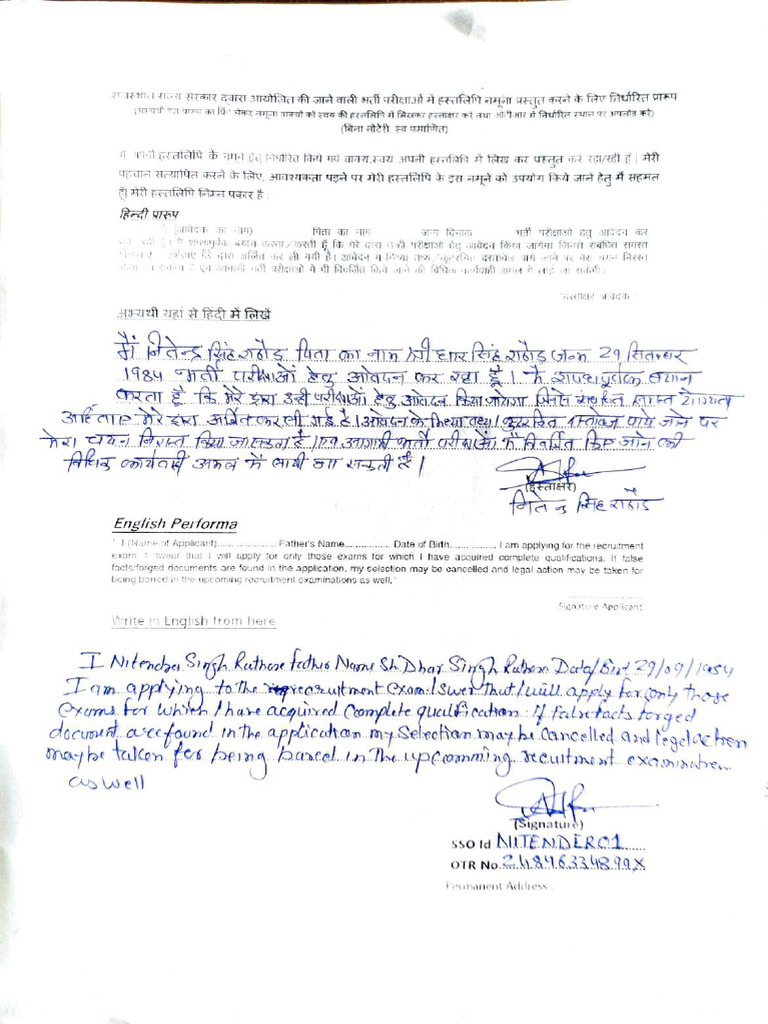 राजस्थान राज्य सरकार द्वारा आयोजित की जाने वाली भर्ती परीक्षाओं में हस्तलिपि नमूना प्रस्तुत करने के लिए निर्धारित प्रारूप
(बिना नोटेरी स्व प्रमाणित)
हस्तलिपि के नमूने हेतु निर्धारित किये गये वाक्य, स्वयं अपनी हस्तलिपि में लिख कर प्रस्तुत कर रहा/रही हैं | मेरी
पहचान सत्यापित करने के लिए, आवश्यकता पड़ने पर मेरी हस्तलिपि के इस नमूने को उपयोग किये जाने हेतु मैं सहमत
हूँ| मेरी हस्तलिपि निम्न प्रकार है :
हिन्दी प्रारूप
(आवेदक का नाम) पिता का नाम जन्म दिनांक भर्ती परीक्षाओं हेतु आवेदन कर
अभ्यर्थी यहां से हिंदी में लिखें
मैं नितेन्द्र सिंह राठौड़ पिता का नाम श्री धार सिंह राठौड़ जन्म 29 सितम्बर
1984 भर्ती परीक्षाओं हेतु आवेदन कर रहा हूँ। मैं शपथपूर्वक बयान
करता हूँ कि मेरे द्वारा उन्ही परीक्षाओं हेतु आवेदन किया जायेगा जिनसे संबंधित समस्त योग्यता
मेरे द्वारा अर्जित कर ली गई है। आवेदन में मिथ्या तथ्य/ कुटरचित दस्तावेज पाये जाने पर
मेरा चयन निरस्त किया जा सकता है। एवं आगामी भर्ती परीक्षाओं में विवर्जित किए जाने की
विधिक कार्यवाही अमल में लायी जा सकती है।
(हस्ताक्षर)
सिंह राठौड़
English Performa
" I (Name of Applicant)................... Father's Name............... Date of Birth............... I am applying for the recruitment
exam. I swear that I will apply for only those exams for which I have acquired complete qualifications. If false
facts/forged documents are found in the application, my selection may be cancelled and legal action may be taken for
being barred in the upcoming recruitment examinations as well."
Signature Applicant
Write in English from here
I Nitender Singh Rathore father Name Sh. Dhar Singh Rathore Data/Birt 29/09/1984
I am applying to the recruitment exam. I swer that I will apply for only those
exams for which I have acquired complete qualification. If false facts forged
document are found in the application my selection may be cancelled and legal action
may be taken for being based in the upcomming recuitment examination
as well
(Signature)
SSO Id NITENDER01
OTR No. 24846334899X
Permanent Address